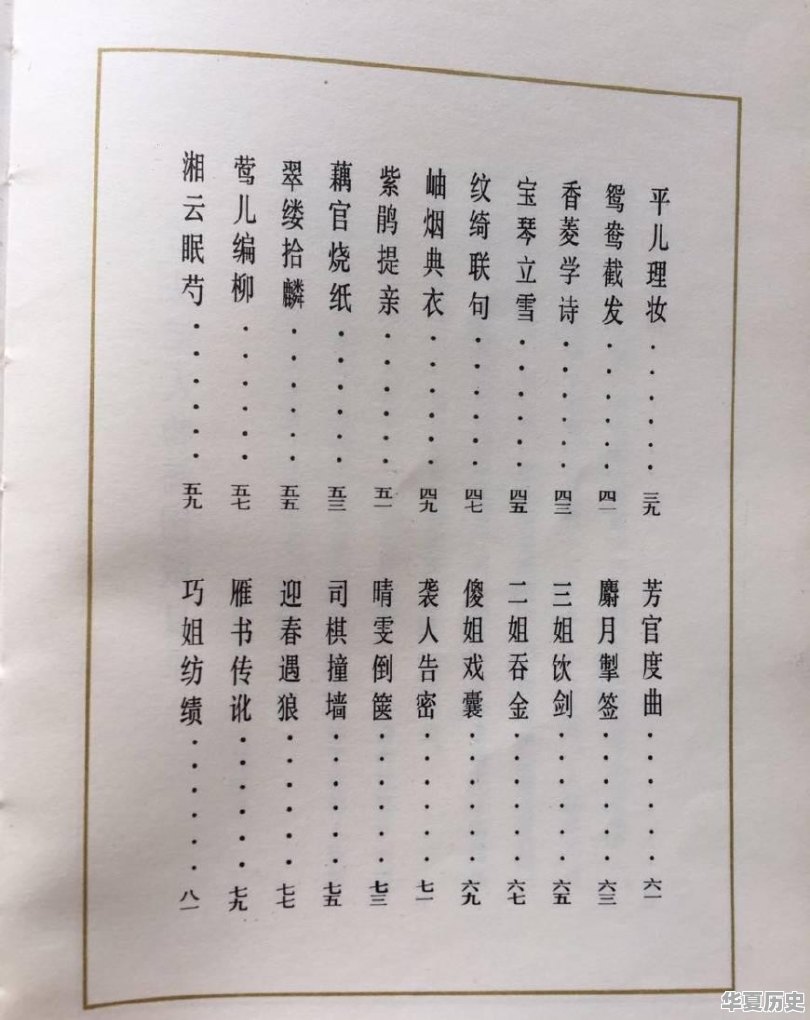 平儿理妆·······三九
鸳鸯截发·······四一
香菱学诗·······四三
宝琴立雪·······四五
纹绮联句·······四七
岫烟典衣·······四九
紫鹃提亲·······五一
藕官烧纸·······五三
翠缕拾麟·······五五
莺儿编柳·······五七
湘云眠芍·······五九
芳官度曲·······六一
麝月掣签·······六三
三姐饮剑·······六五
二姐吞金·······六七
傻姐戏囊·······六九
袭人告密·······七一
晴雯倒箧·······七三
司棋撞墙·······七五
迎春遇狼·······七七
雁书传讹·······七九
巧姐纺绩·······八一
华夏历史